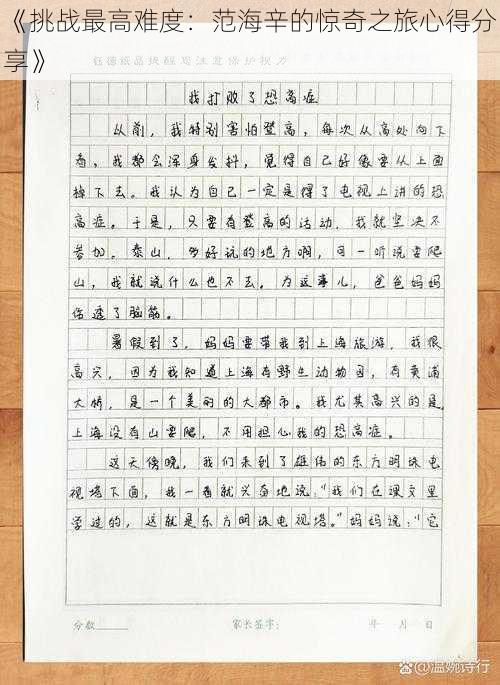 《挑战最高难度：范海辛的惊奇之旅心得分
享》
钰德纸品提醒您注意保护视力
我打败了恐高症
以前，我特别害怕登高，每次从高处向下
看，我都会浑身发抖，觉得自己好像要从上面
掉下去。我认为自己一定是得了电视上讲的恐
高症。于是，只要有登高的活动，我就坚决不
参加。泰山，多好玩的地方啊，可一听说要爬
山，我就说什么也不去。为这事儿，爸爸妈妈
伤透了脑筋。
暑假到了，妈妈要带我到上海旅游，我很
高兴，因为我知道上海有野生动物园，有黄浦
大桥，是一个美丽的大都市。我尤其高兴的是，
上海没有山要爬，不用担心我的恐高症。
这天傍晚，我们来到了雄伟的东方明珠电
视塔下面，我一看就兴奋地说：“我们在课文里
学过的，这就是东方明珠电视塔。”妈妈说：“它
分数
家长签字：
年 月 日
@温婉诗行